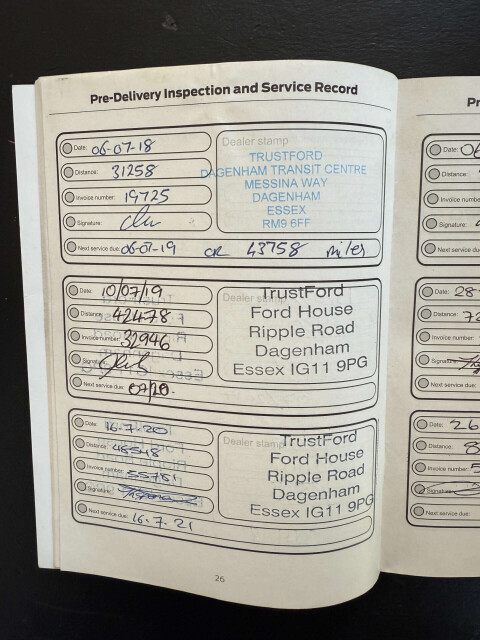 Pre-Delivery Inspection and Service Record
Date: 06-07-18
Distance: 31258
Invoice number: 19725
Signature:
Next service due: 06-07-19 OR 43758 miles
Dealer stamp
TRUSTFORD
DAGENHAM TRANSIT CENTRE
MESSINA WAY
DAGENHAM
ESSEX
RM9 6FF
Date: 10/07/19
Distance: 42478
Invoice number: 32946
Signature:
Next service due: 07/20.
Dealer stamp
TrustFord
Ford House
Ripple Road
Dagenham
Essex IG11 9PG
Date: 16-7-20
Distance: 48548
Invoice number: 55781
Signature:
Next service due: 16-7-21
Dealer stamp
TrustFord
Ford House
Ripple Road
Dagenham
Essex IG11 9PG
26
Date:
Distance:
Invoice number:
Signature:
Next service due:
Date: 28-
Distance: 72
Invoice number:
Signature:
Next service due:
Date: 26
Distance: 8
Invoice number: 5
Signature:
Next service due: